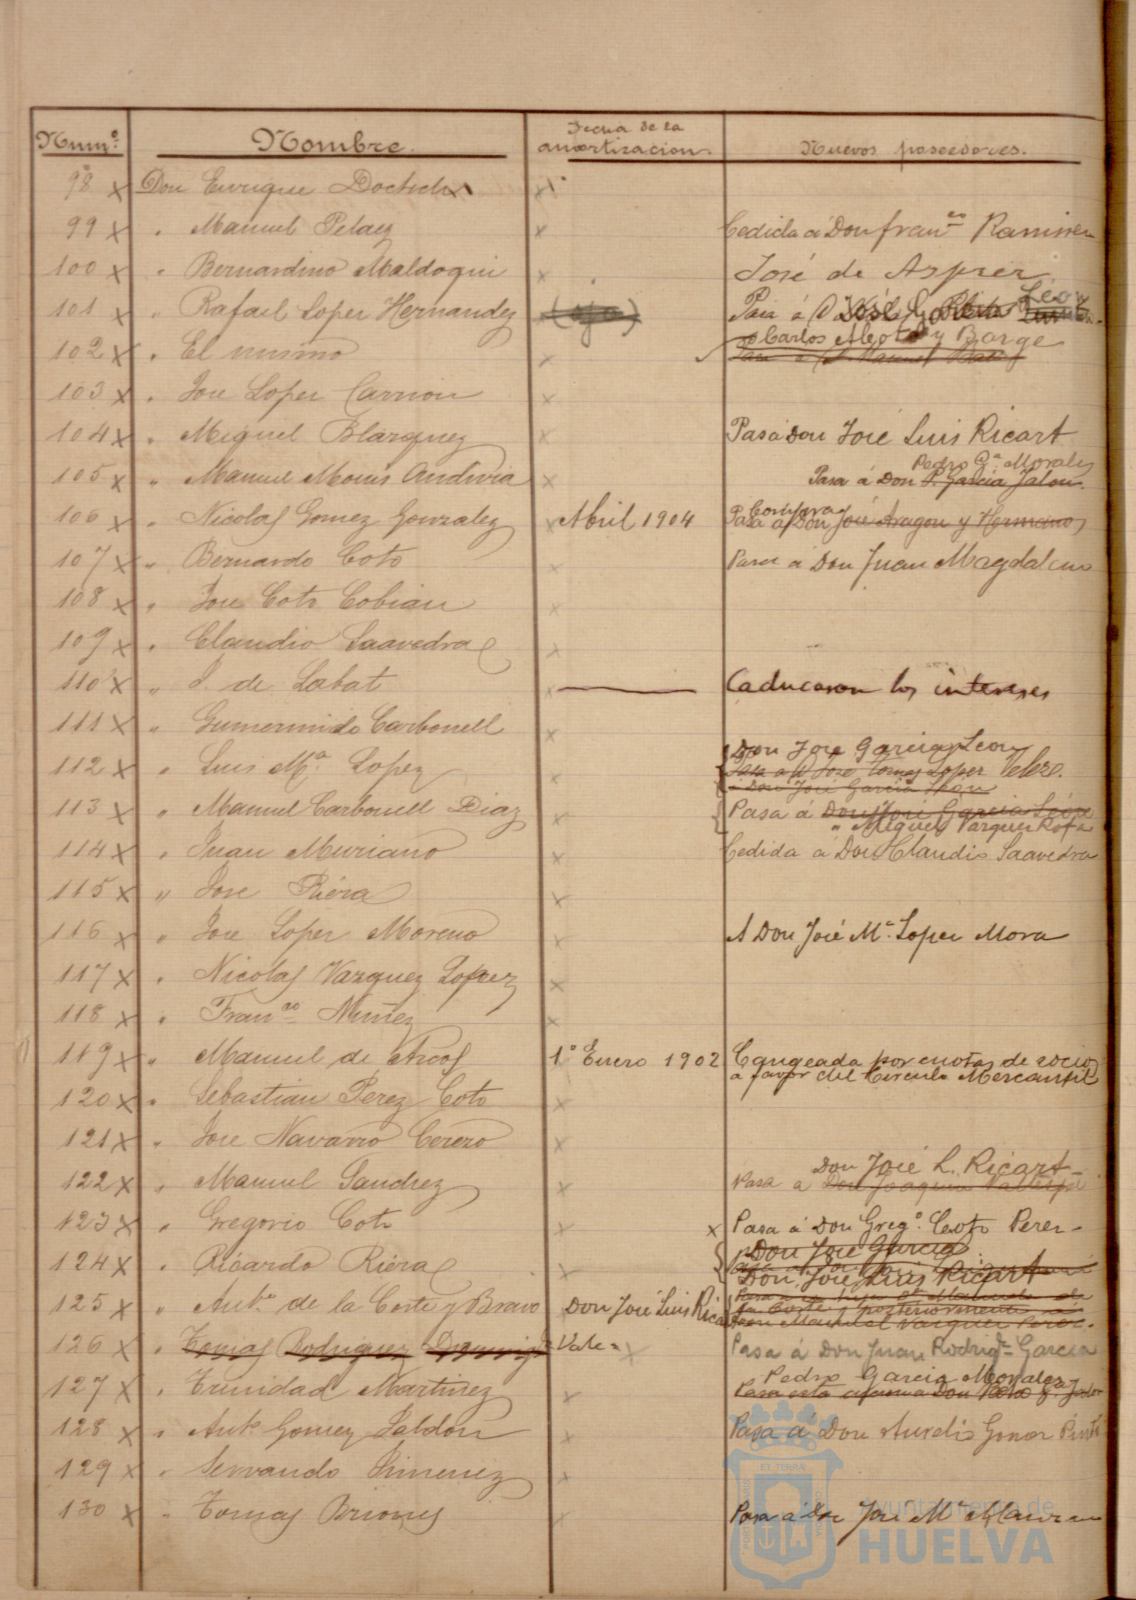 Numº. Nombre. Fecha de la amortizacion. Nuevos poseedores.
98 x Don Enrique x
99 x " Manuel Pelaez x Cedida á Don Franco
100 x " Bernardino Maldoqui x José de
101 x " Rafael Lopez Hernandez Pasa á D José León
102 x " El mismo x Carlos Alcot y Borge
103 x " Jose Lopez Carrion x
104 x " Miguel Blazquez x Pasa á Don José Luis Ricart
105 x " Manuel Mouis Andivia x Pasa á Don P. Garcia Jalon.
Pedro Ga. Morales
106 x " Nicolas Gomez Gonzalez x Abril 1904 Pasa á Don José Aragon y Hermanos
107 x " Bernardo Coto x Pasa á Don Juan Magdalena
108 x " Jose Coto Cobian x
109 x " Claudio Saavedra x
110 x " de Labat x Caducaron los intereses
111 x " Gumersindo Carbonell x
112 x " Luis Ma. Lopez x Don Jose Garcia Leon
Pasa a D José Tomas Lopez Velez.
á Don José Garcia
113 x " Manuel Carbonell Diaz x Pasa á Don José Garcia León
" Miguel Vazquez Rofa
114 x " Juan Muriano x Cedida a Don Claudio Saavedra
115 x " Jose Riera x
116 x " Jose Lopez Moreno x A Don José Ma. Lopez Mora
117 x " Nicolas Vazquez Lopez x
118 x " Franco Nuñez x
119 x " Manuel de Arcos 1º Enero 1902 Cangeada por cuotas de socios
a favor del Circulo Mercantil
120 x " Sebastian Perez Coto x
121 x " Jose Navarro Cerezo x
122 x " Manuel Sanchez x Don José L. Ricart
Pasa á Don Joaquin
123 x " Gregorio Coto x x Pasa á Don Grego. Coto Perez
124 x " Ricardo Riera x Don José Garcia
Don José Luis Ricart
125 x " Anto. de la Corte y Bravo Don José Luis Ricart
la Corte y posteriormente á
Don Manuel Vazquez Perez.
126 x " Tomas Rodriguez Vale x Pasa á Don Juan Rodrigz. Garcia
127 x " Trinidad Martinez x Pedro Garcia Morales
128 x " Anto. Gomez x Pasa á Don Aurelio Gomez
129 x " Servando Jimenez x
130 x " Tomas Briones Pasa á Don José Ma.
Ayuntamiento de
HUELVA